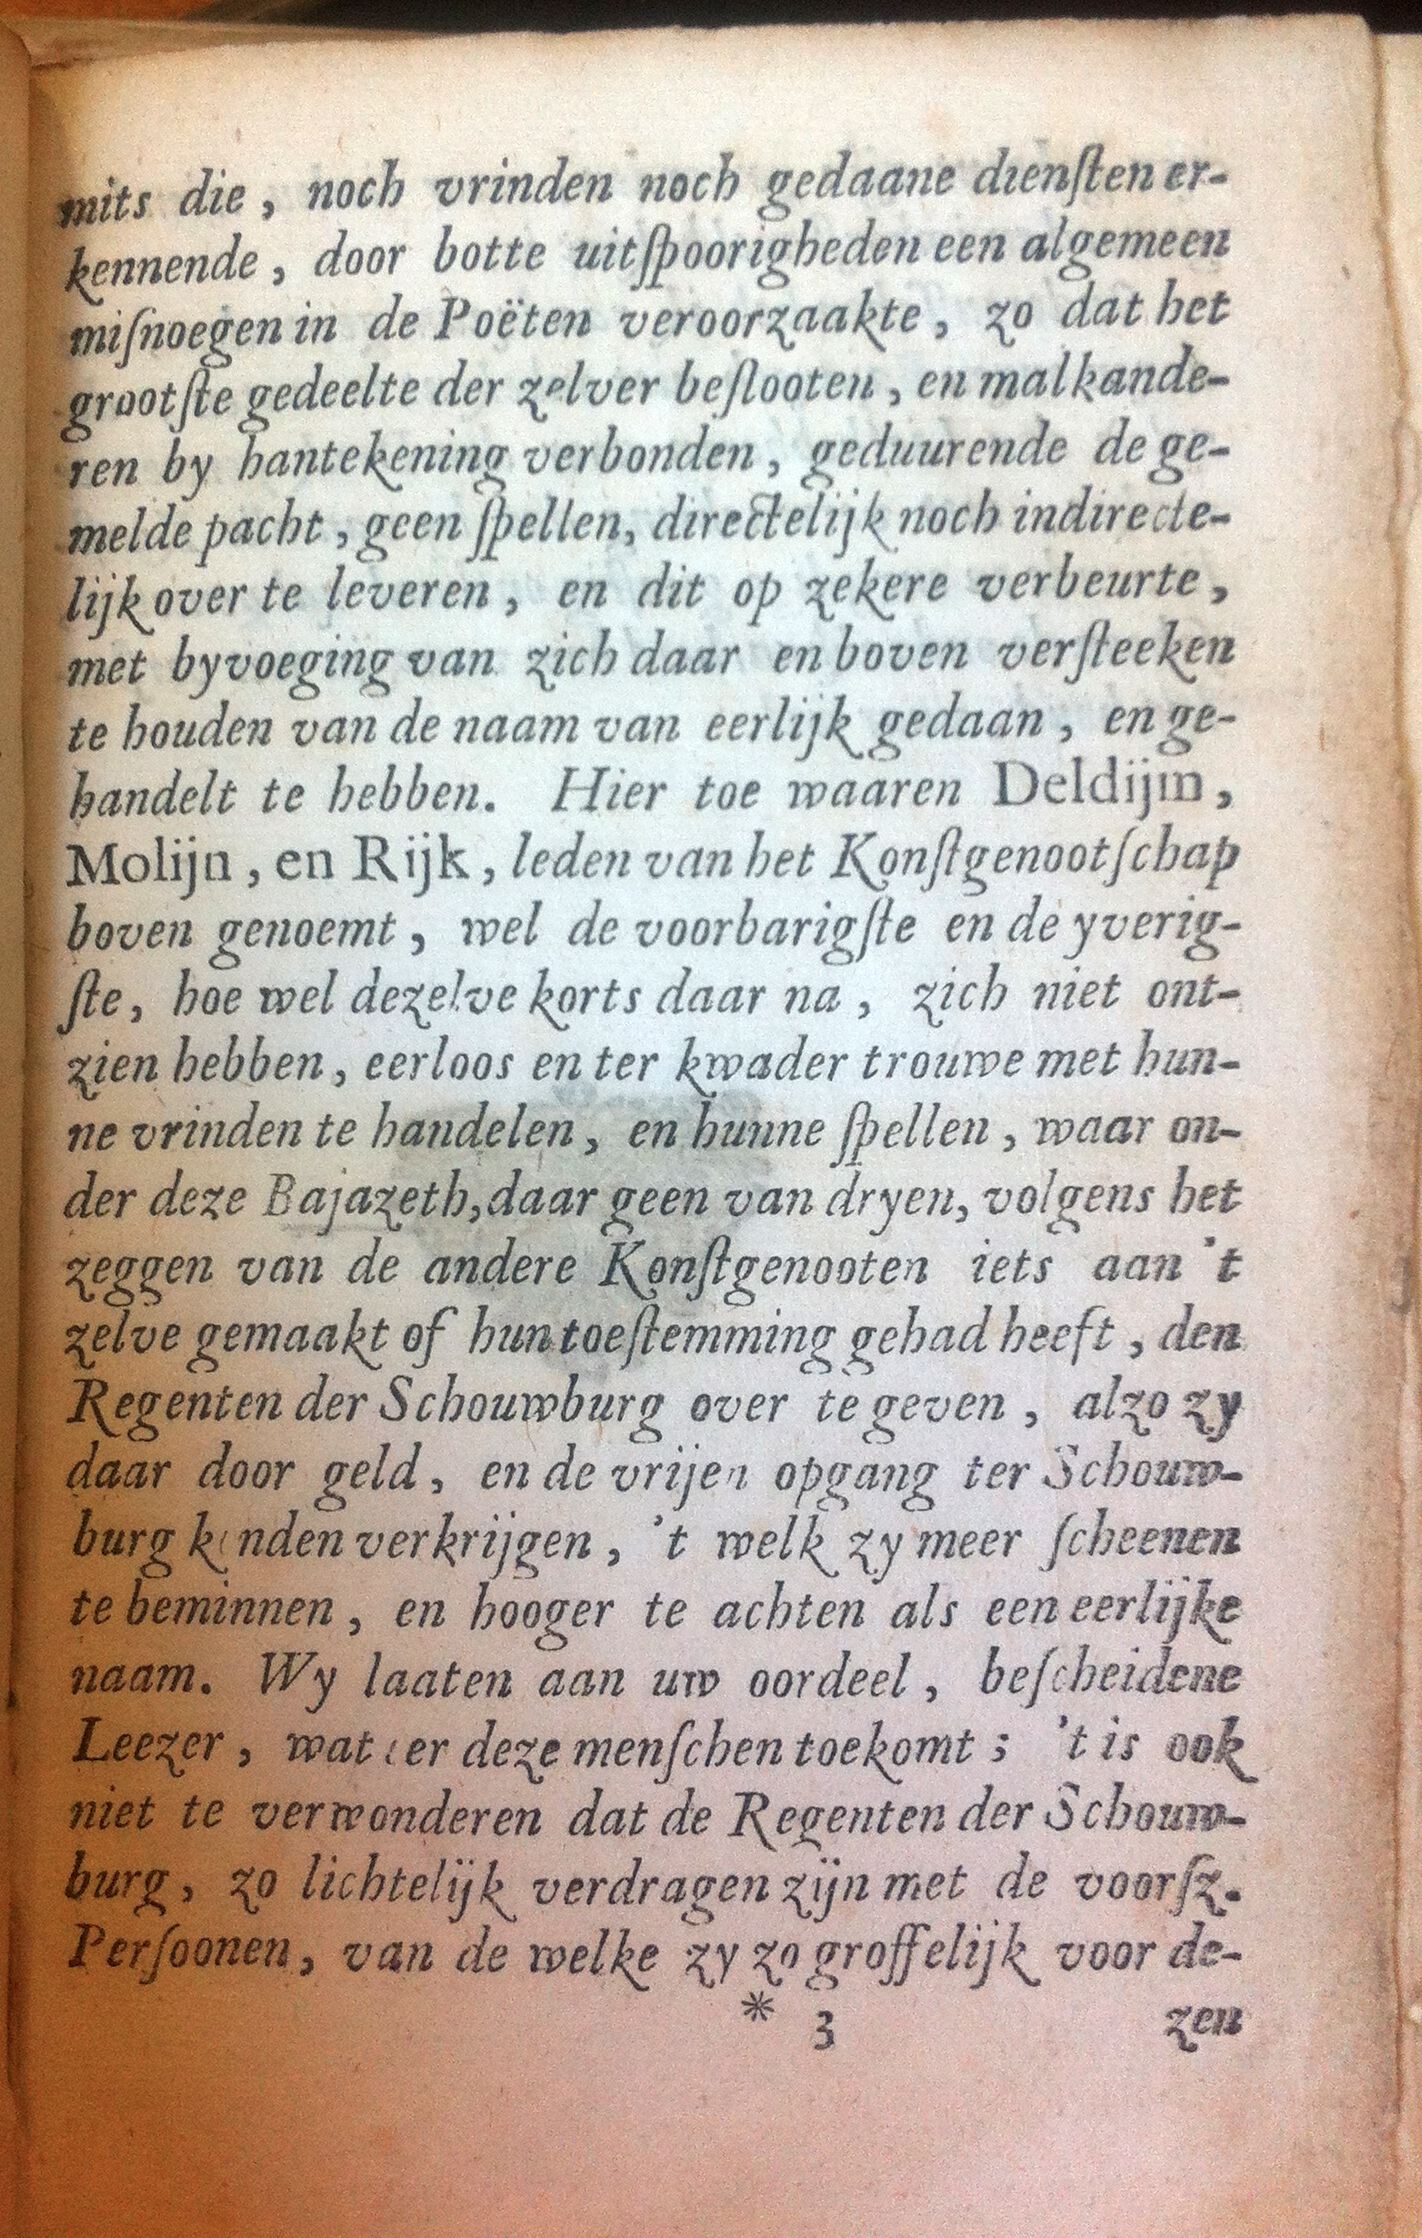 mits die, noch vrinden noch gedaane dienſten er-
kennende, door botte uitſpoorigheden een algemeen
miſnoegen in de Poëten veroorzaakte, zo dat het
grootſte gedeelte der zelver beſlooten, en malkande-
ren by hantekening verbonden, geduurende de ge-
melde pacht, geen ſpellen, directelijk noch indirecte-
lijk over te leveren, en dit op zekere verbeurte,
met byvoeging van zich daar en boven verſteeken
te houden van de naam van eerlijk gedaan, en ge-
handelt te hebben. Hier toe waaren Deldijm,
Molijn, en Rijk, leden van het Konſtgenootſchap
boven genoemt, wel de voorbarigſte en de yverig-
ſte, hoe wel dezelve korts daar na, zich niet ont-
zien hebben, eerloos en ter kwader trouwe met hun-
ne vrinden te handelen, en hunne ſpellen, waar on-
der deze Bajazeth, daar geen van dryen, volgens het
zeggen van de andere Konſtgenooten iets aan 't
zelve gemaakt of hun toeſtemming gehad heeft, den
Regenten der Schouwburg over te geven, alzo zy
daar door geld, en de vrijen opgang ter Schouw-
burg konden verkrijgen, 't welk zy meer ſcheenen
te beminnen, en hooger te achten als een eerlijke
naam. Wy laaten aan uw oordeel, beſcheidene
Leezer, wat eer deze menſchen toekomt; 't is ook
niet te verwonderen dat de Regenten der Schouw-
burg, zo lichtelijk verdragen zijn met de voorſz.
Perſoonen, van de welke zy zo groffelijk voor de-
* 3 zen